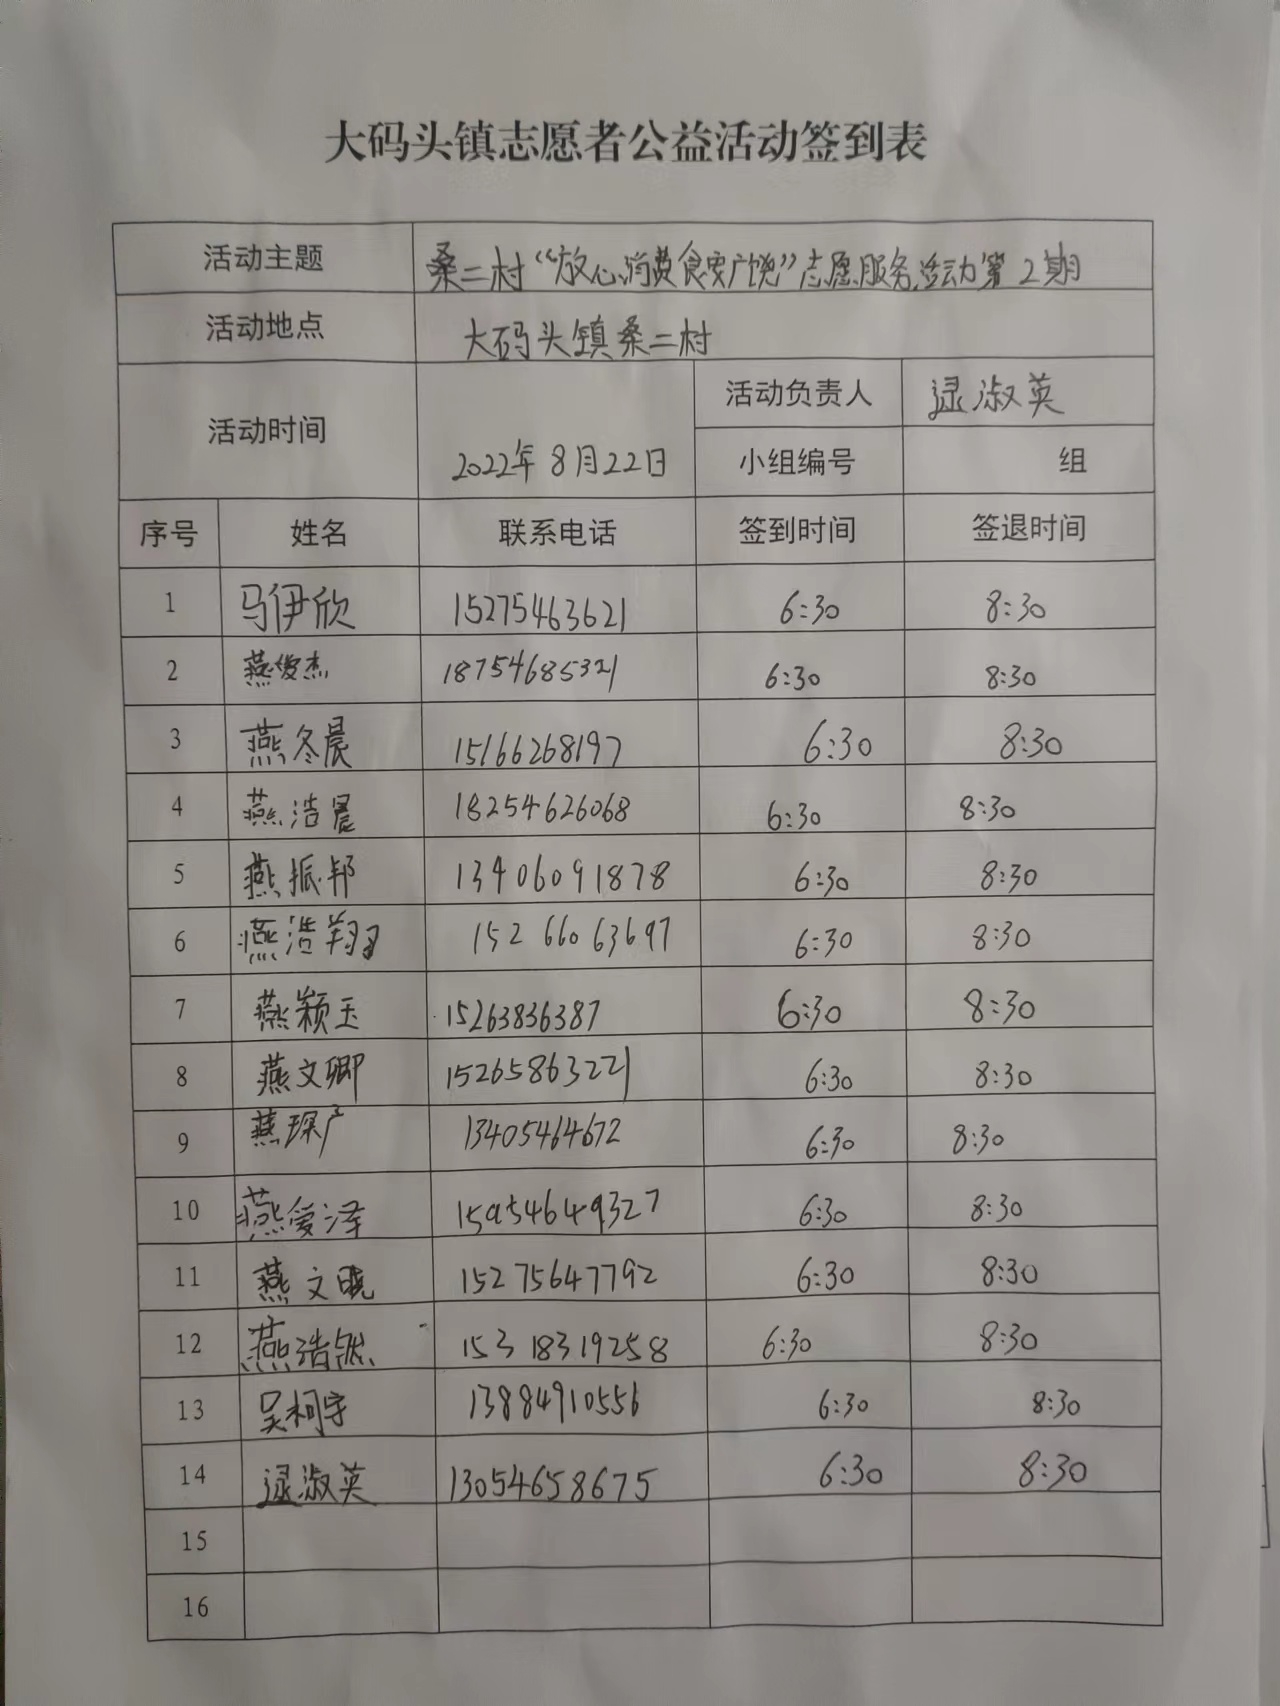 大码头镇志愿者公益活动签到表
活动主题 桑二村“放心消费食安广饶”志愿服务活动第2期
活动地点 大码头镇桑二村
活动时间 2022年8月22日 活动负责人 逯淑英
小组编号 组
序号 姓名 联系电话 签到时间 签退时间
1 马伊欣 15275463621 6:30 8:30
2 燕俊杰 18754685321 6:30 8:30
3 燕冬晨 15166268197 6:30 8:30
4 燕浩晨 18254626068 6:30 8:30
5 燕振邦 13406091878 6:30 8:30
6 燕浩翔 15266063697 6:30 8:30
7 燕颖玉 15263836387 6:30 8:30
8 燕文卿 15265863221 6:30 8:30
9 燕琛广 13405464672 6:30 8:30
10 燕爱泽 15954649327 6:30 8:30
11 燕文晓 15275647792 6:30 8:30
12 燕浩 15318319258 6:30 8:30
13 吴柯宇 13884910556 6:30 8:30
14 逯淑英 13054658675 6:30 8:30
15
16